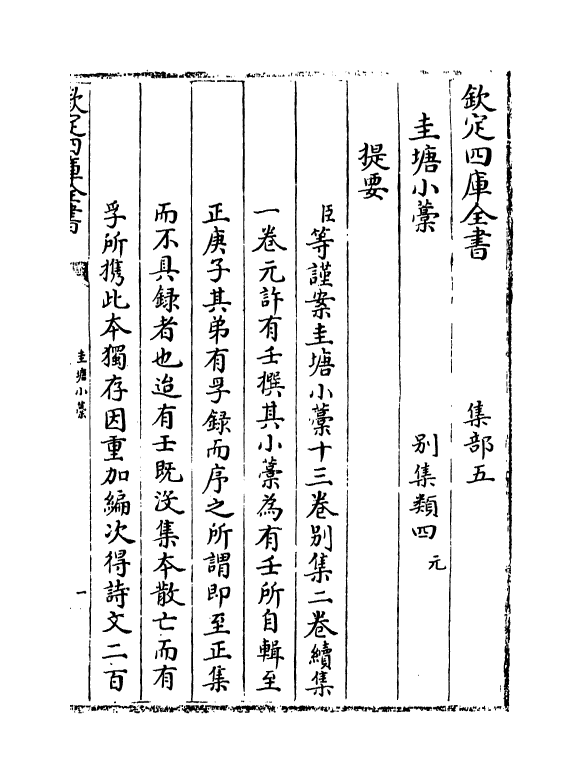 欽定四庫全書　集部五
圭塘小藁　別集類四元
提要
臣等謹案圭塘小藁十三卷別集二卷續集
一卷元許有壬撰其小藁為有壬所自輯至
正庚子其弟有孚録而序之所謂即至正集
而不具録者也迨有壬既没集本散亡而有
孚所攜此本獨存因重加編次得詩文二百
欽定四庫全書
圭塘小藁
一